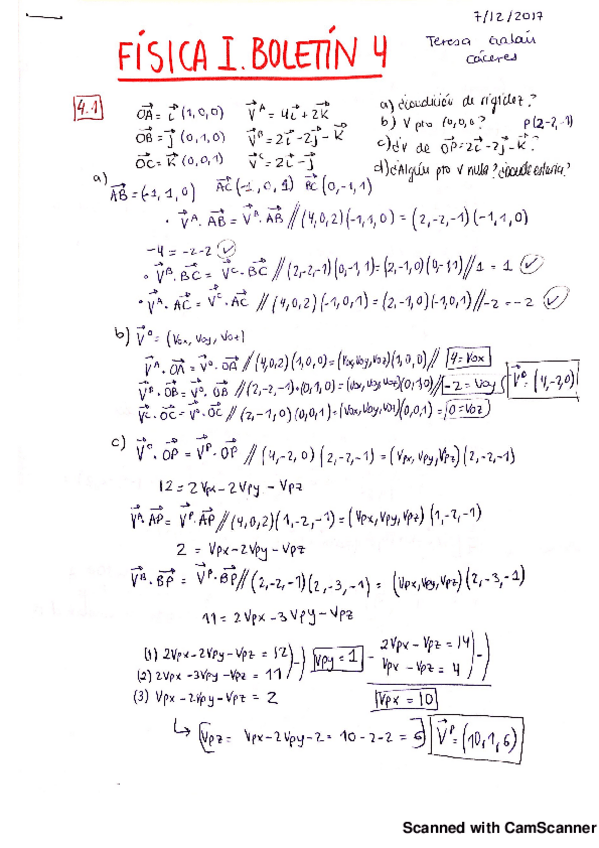 7/12/2017
FÍSICA I. BOLETÍN 4
Teresa Galán
Cáceres
4.1
OA = i (1,0,0) V^A = 4i + 2k a) ¿condición de rigidez?
OB = j (0,1,0) V^B = 2i - 2j - k b) V pto (0,0,0)? P(2,-2,-1)
OC = k (0,0,1) V^C = 2i - j c) ¿V de OP = 2i - 2j - k?
d) ¿Algún pto V nula? ¿dónde estaría?
a) AB = (-1,1,0) AC (-1,0,1) BC (0,-1,1)
• V^A · AB = V^B · AB // (4,0,2)(-1,1,0) = (2,-2,-1)(-1,1,0)
-4 = -2-2 ✓
• V^B · BC = V^C · BC // (2,-2,-1)(0,-1,1) = (2,-1,0)(0,-1,1) // 1 = 1 ✓
• V^A · AC = V^C · AC // (4,0,2)(-1,0,1) = (2,-1,0)(-1,0,1) // -2 = -2 ✓
b) V^O = (Vox, Voy, Voz)
V^A · OA = V^O · OA // (4,0,2)(1,0,0) = (Vox,Voy,Voz)(1,0,0) // 4 = Vox
V^B · OB = V^O · OB // (2,-2,-1)·(0,1,0) = (Vox,Voy,Voz)(0,1,0) // -2 = Voy V^O = (4,-2,0)
V^C · OC = V^O · OC // (2,-1,0)(0,0,1) = (Vox,Voy,Voz)(0,0,1) = 0 = Voz
c) V^O · OP = V^P · OP // (4,-2,0)(2,-2,-1) = (Vpx,Vpy,Vpz)(2,-2,-1)
12 = 2Vpx - 2Vpy - Vpz
V^A · AP = V^P · AP // (4,0,2)(1,-2,-1) = (Vpx,Vpy,Vpz)(1,-2,-1)
2 = Vpx - 2Vpy - Vpz
V^B · BP = V^P · BP // (2,-2,-1)(2,-3,-1) = (Vpx,Vpy,Vpz)(2,-3,-1)
11 = 2Vpx - 3Vpy - Vpz
(1) 2Vpx - 2Vpy - Vpz = 12 Vpy = 1 2Vpx - Vpz = 14
(2) 2Vpx - 3Vpy - Vpz = 11 Vpx - Vpz = 4
(3) Vpx - 2Vpy - Vpz = 2 Vpx = 10
Vpz = Vpx - 2Vpy - 2 = 10 - 2 - 2 = 6 V^P = (10,1,6)
Scanned with CamScanner